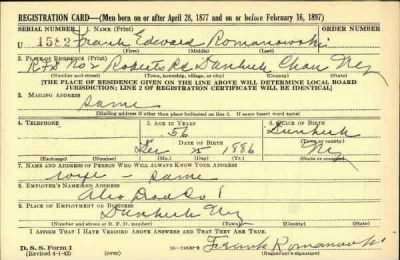 REGISTRATION CARD—(Men born on or after April 28, 1877 and on or before February 16, 1897)
SERIAL NUMBER 1. NAME (Print) ORDER NUMBER
U 1582 Frank Edward Romanowski
(First) (Middle) (Last)
2. PLACE OF RESIDENCE (Print)
RFD No 2 Roberts Rd Dunkirk Chau Ny
(Number and street) (Town, township, village, or city) (County) (State)
[THE PLACE OF RESIDENCE GIVEN ON THE LINE ABOVE WILL DETERMINE LOCAL BOARD
JURISDICTION; LINE 2 OF REGISTRATION CERTIFICATE WILL BE IDENTICAL]
3. MAILING ADDRESS
Same
(Mailing address if other than place indicated on line 2. If same insert word same)
4. TELEPHONE 5. AGE IN YEARS 6. PLACE OF BIRTH
56 Dunkirk
DATE OF BIRTH (Town or county)
Dec 25 1886 Ny
(Exchange) (Number) (Mo.) (Day) (Yr.) (State or country)
7. NAME AND ADDRESS OF PERSON WHO WILL ALWAYS KNOW YOUR ADDRESS
Wife - Same
8. EMPLOYER'S NAME AND ADDRESS
Alco
9. PLACE OF EMPLOYMENT OR BUSINESS
Dunkirk Ny
(Number and street or R. F. D. number) (Town) (County) (State)
I AFFIRM THAT I HAVE VERIFIED ABOVE ANSWERS AND THAT THEY ARE TRUE.
D. S. S. Form 1
(Revised 4-1-42) (over) Frank Romanowski
(Registrant's signature)